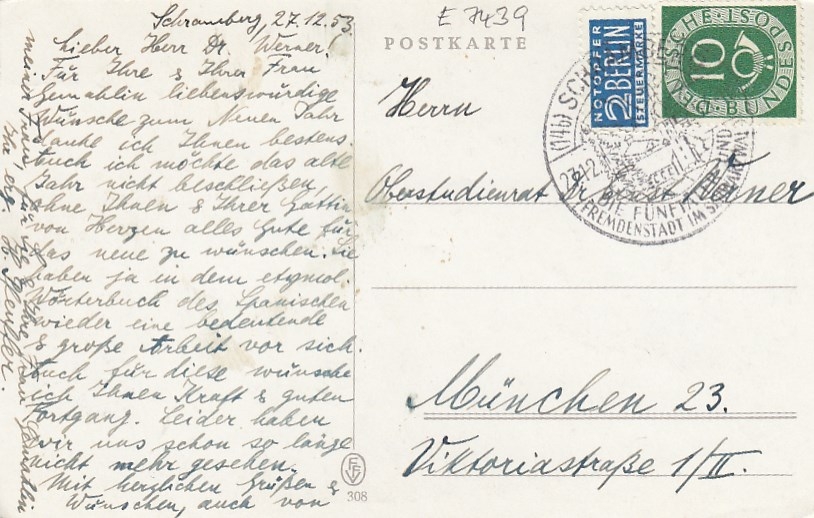 Schramberg, 27.12.53.
Lieber Herr Dr. Werner!
Für Ihre & Ihrer Frau
Gemahlin liebenswürdige
Wünsche zum Neuen Jahr
danke ich Ihnen bestens.
Auch ich möchte das alte
Jahr nicht beschließen,
ohne Ihnen & Ihrer Gattin
von Herzen alles Gute für
das neue zu wünschen. Sie
haben ja in dem etymol.
Wörterbuch des Spanischen
wieder eine bedeutende
& große Arbeit vor sich.
Auch für diese wünsche
ich Ihnen Kraft & guten
Fortgang. Leider haben
wir uns schon so lange
nicht mehr gesehen.
Mit herzlichen Grüßen &
Wünschen, auch von
meiner Frau, für Sie & Ihre Frau Gemahlin
Ihr erg.
E 7439
POSTKARTE
NOTOPFER
2 BERLIN
STEUERMARKE
DEUTSCHE BUNDESPOST
10
(14b) SCH
DIE FÜNFTÄLER- UND
FREMDENSTADT IM SCHWARZWALD
Herrn
Oberstudienrat Dr. Ernst Werner
München 23.
Viktoriastraße 1/II.
308